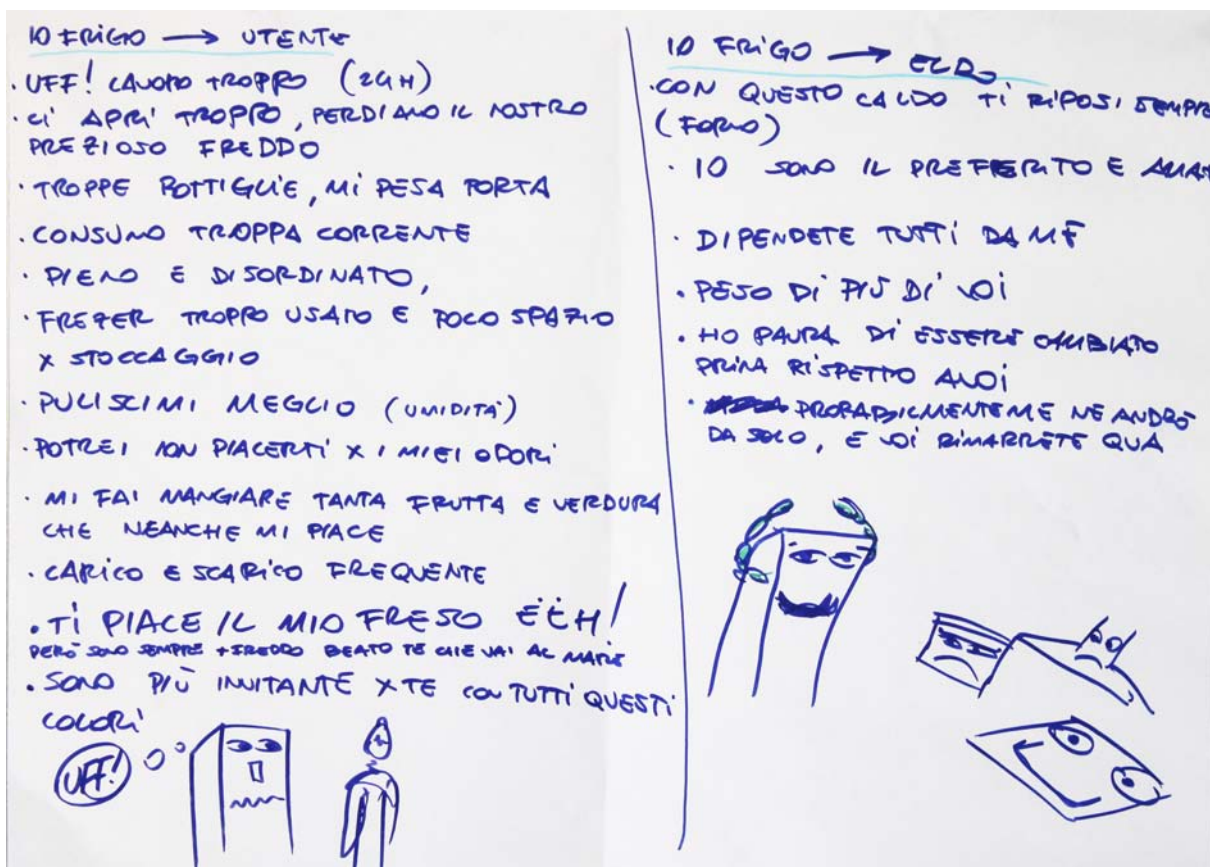 IO FRIGO → UTENTE
· UFF! LAVORO TROPPO (24H)
· CI APRI TROPPO, PERDIAMO IL NOSTRO
PREZIOSO FREDDO
· TROPPE BOTTIGLIE, MI PESA PORTA
· CONSUMO TROPPA CORRENTE
· PIENO E DISORDINATO,
· FREZER TROPPO USATO E POCO SPAZIO
X STOCCAGGIO
· PULISCIMI MEGLIO (UMIDITÀ)
· POTREI NON PIACERTI X I MIEI ODORI
· MI FAI MANGIARE TANTA FRUTTA E VERDURA
CHE NEANCHE MI PIACE
· CARICO E SCARICO FREQUENTE
· TI PIACE IL MIO FRESO EEH!
PERÒ SONO SEMPRE + FREDDO BEATO TE CHE VAI AL MARE
· SONO PIÙ INVITANTE X TE CON TUTTI QUESTI
COLORI
UFF!
IO FRIGO → ELDO
· CON QUESTO CALDO TI RIPOSI SEMPRE
(FORNO)
· IO SONO IL PREFERITO E
· DIPENDETE TUTTI DA ME
· PESO DI PIÙ DI VOI
· HO PAURA DI ESSERE CAMBIATO
PRIMA RISPETTO A VOI
· PROBABILMENTE ME NE ANDRÒ
DA SOLO, E VOI RIMARRETE QUA